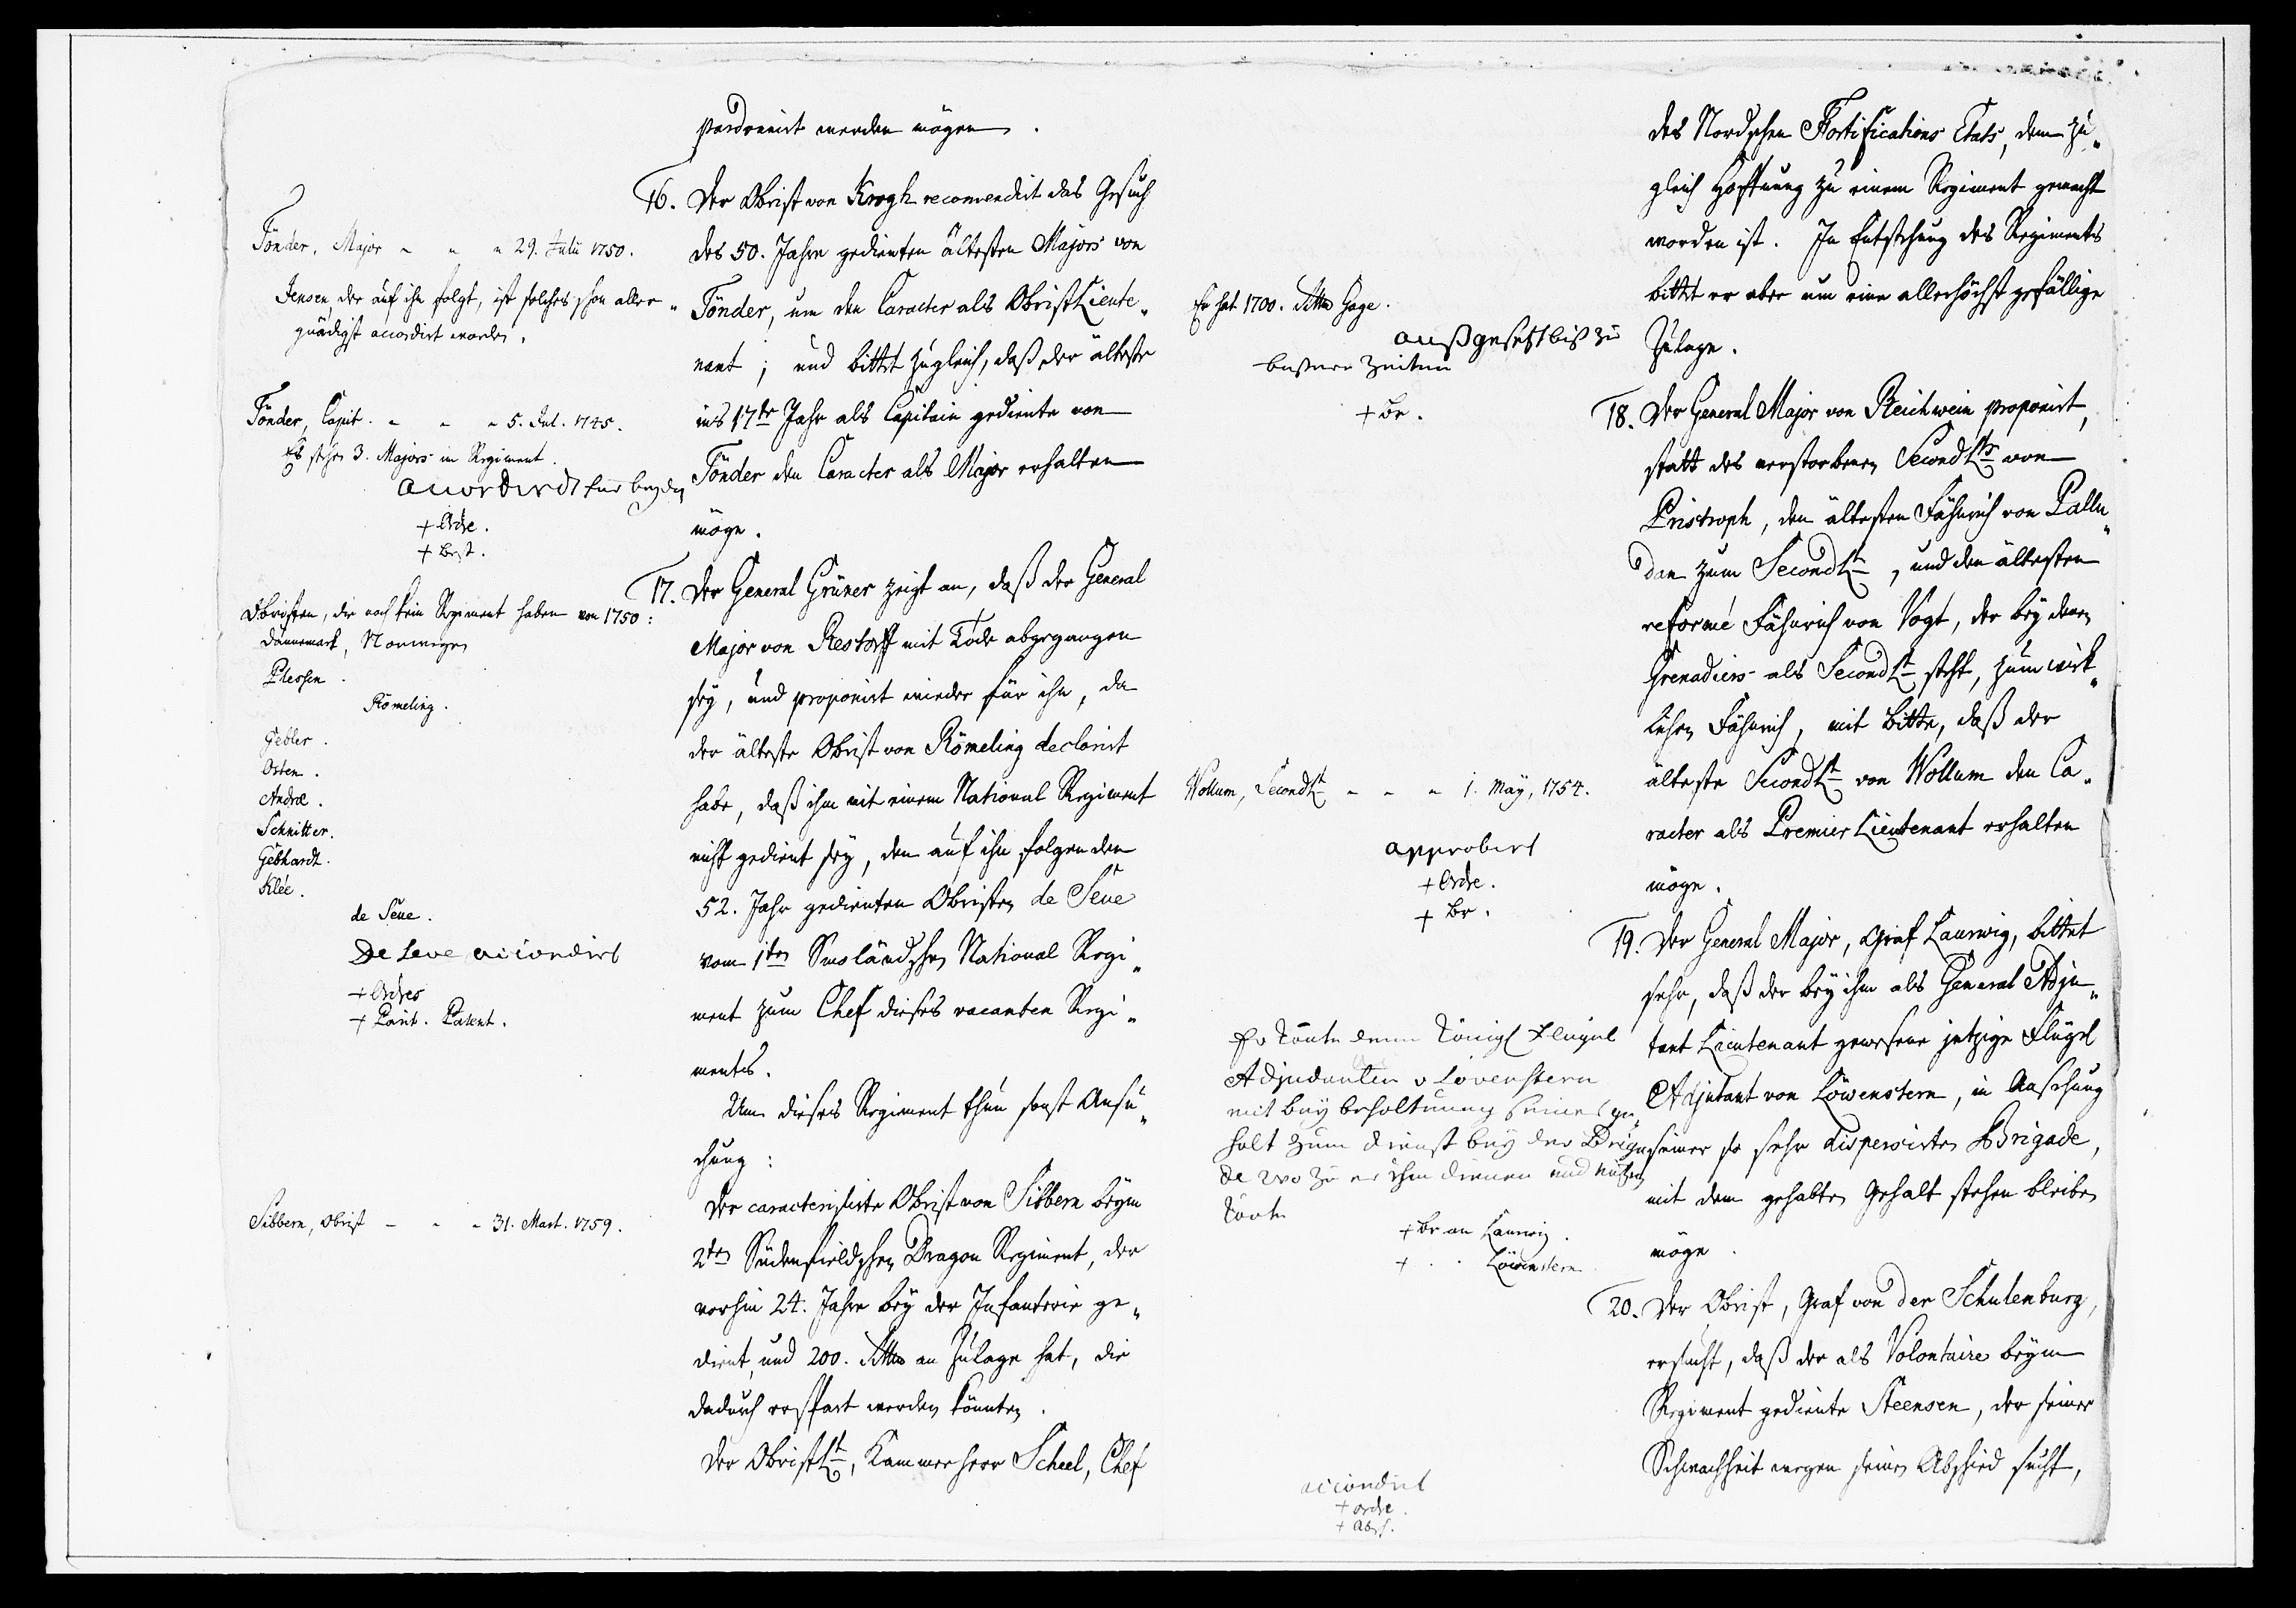 pardonnirt werden mögen.
16. Der Obrist von Krogh recomendirt das Gesuch
des 50. Jahre gedienten ältesten Majors von
Tönder, um den Caracter als ObristLieute„
nant; und bittet zugleich, daß der älteste
ins 17te Jahr als Capitain gediente von
Tönder den Caracter als Major erhalten
möge.
17. Der General Grüner zeigt an, daß der General
Major von Restorff mit Tode abgegangen
sey, und proponirt wieder für ihn, da
der älteste Obrist von Römeling declarirt
habe, daß ihm mit einem National Regiment
nicht gedient sey, den auf ihn folgenden
52. Jahr gedienten Obristen de Seue
vom 1ten Smoländschen National Regi„
ment zum Chef dieses vacanten Regi„
ments.
Um dieses Regiment thun sonst Ansu„
chung:
Der caracterisirte Obrist von Sibbern beym
2ten Südenfieldschen Dragon Regiment, der
vorhin 24. Jahre bey der Infanterie ge„
dient, und 200. Rthlr an Zulage hat, die
dadurch erspart werden könnten.
Der ObristLt, Kammerherr Scheel, Chef
Tönder, Major - - - 29. Julii 1750.
Jensen, der auf ihn folgt, ist solches schon aller„
gnädigst accordirt worden.
Tönder, Capit. - - - 5. Jul. 1745.
Es stehen 3. Majors im Regiment.
accordirdt für beyde
+ Ordre.
+ Best.
Obristen, die noch kein Regiment haben von 1750:
Dännemark, Norwegen
Plessen.
Römeling.
Gebler.
Osten.
Andræ.
Schnitter.
Gebhardt.
Klée.
de Seue.
De Seve accordirt
+ Ordres
+ Parit. Patent.
Sibbern, Obrist - - - 31. Mart. 1759.
des Nordschen Fortifications Etats, dem zu„
gleich Hoffnung zu einem Regiment gemacht
worden ist. In Entstehung des Regiments
bittet er aber um eine allerhöchst gefällige
Zulage.
18. Der General Major von Reichwein proponirt,
statt des verstorbenen SecondLts von
Pristroph, den ältesten Fähnrich von Pallu„
dan zum SecondLt, und den ältesten
reformé Fähnrich von Vogt, der bey denen
Grenadiers als SecondLt steht, zum wirk„
lichen Fähnrich, mit Bitte, daß der
älteste SecondLt von Wollum den Ca„
racter als Premier Lieutenant erhalten
möge.
19. Der General Major, Graf Laurwig, bittet
sehr, daß der bey ihm als General Adju„
tant Lieutenant gewesene jetzige Flügel
Adjutant von Löwenstern, in Ansehung
seiner so sehr disperirten Brigade,
mit dem gehabten Gehalt stehen bleiben
möge.
20. Der Obrist, Graf von der Schulenburg,
ersucht, daß der als Volontaire beym
Regiment gediente Steensen, der seiner
Schwachheit wegen seinen Abschied sucht,
Er hat 1700. Rthlr Gage.
außgesetzt biß zu
bessere Zeiten
+ Br.
Wollum, SecondLt - - - 1. May, 1754.
approbirt
+ Ordre.
+ Br.
Er könte denn Königl Fleugel
Adjudanten v Lövenstern
mit beybehaltuung seines ge„
halt zum dienst bey der Briga„
de wo zu er ihm dienen und nutzen
könte
+ Br an Laurwig.
+ . . Löwenstern
accordirt
+ Ordre.
+ Absch.